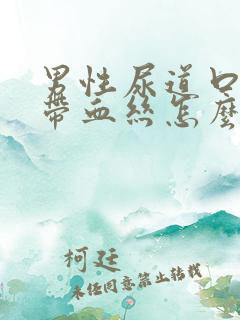 男性尿道口
带血丝怎麼
柯廷
未经同意禁止转载